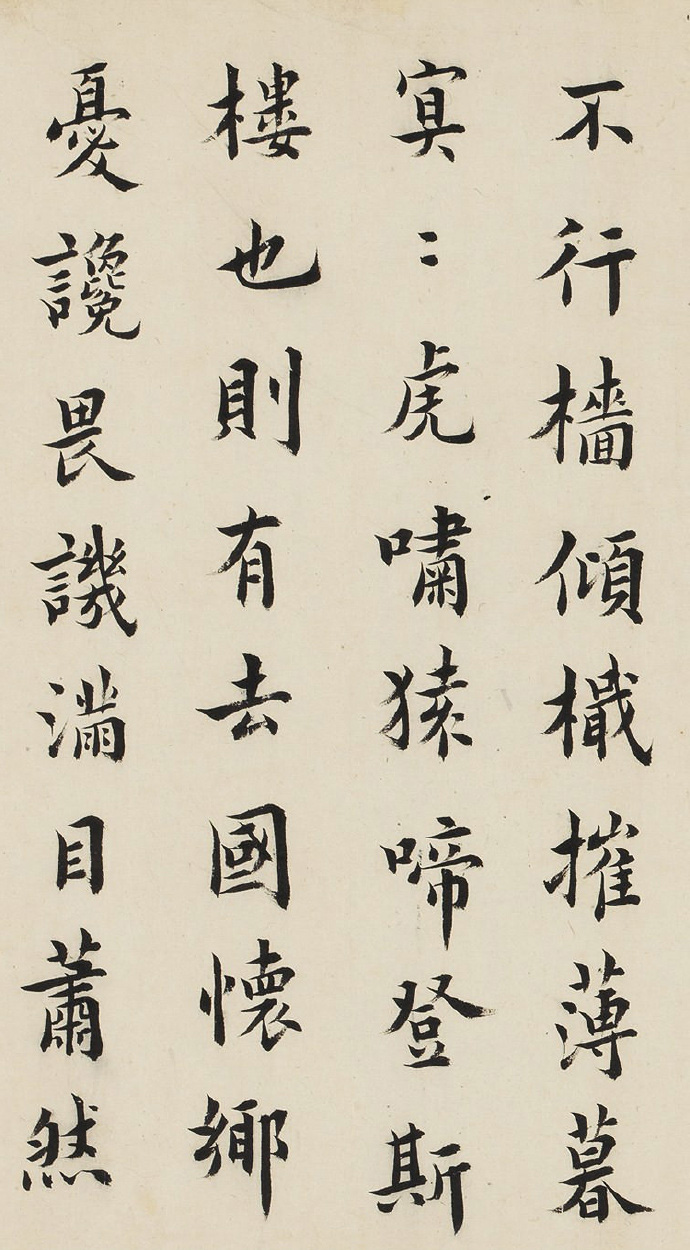 不行檣傾檝摧薄暮
冥〻虎嘯猿啼登斯
樓也則有去國懷鄉
憂讒畏譏滿目蕭然